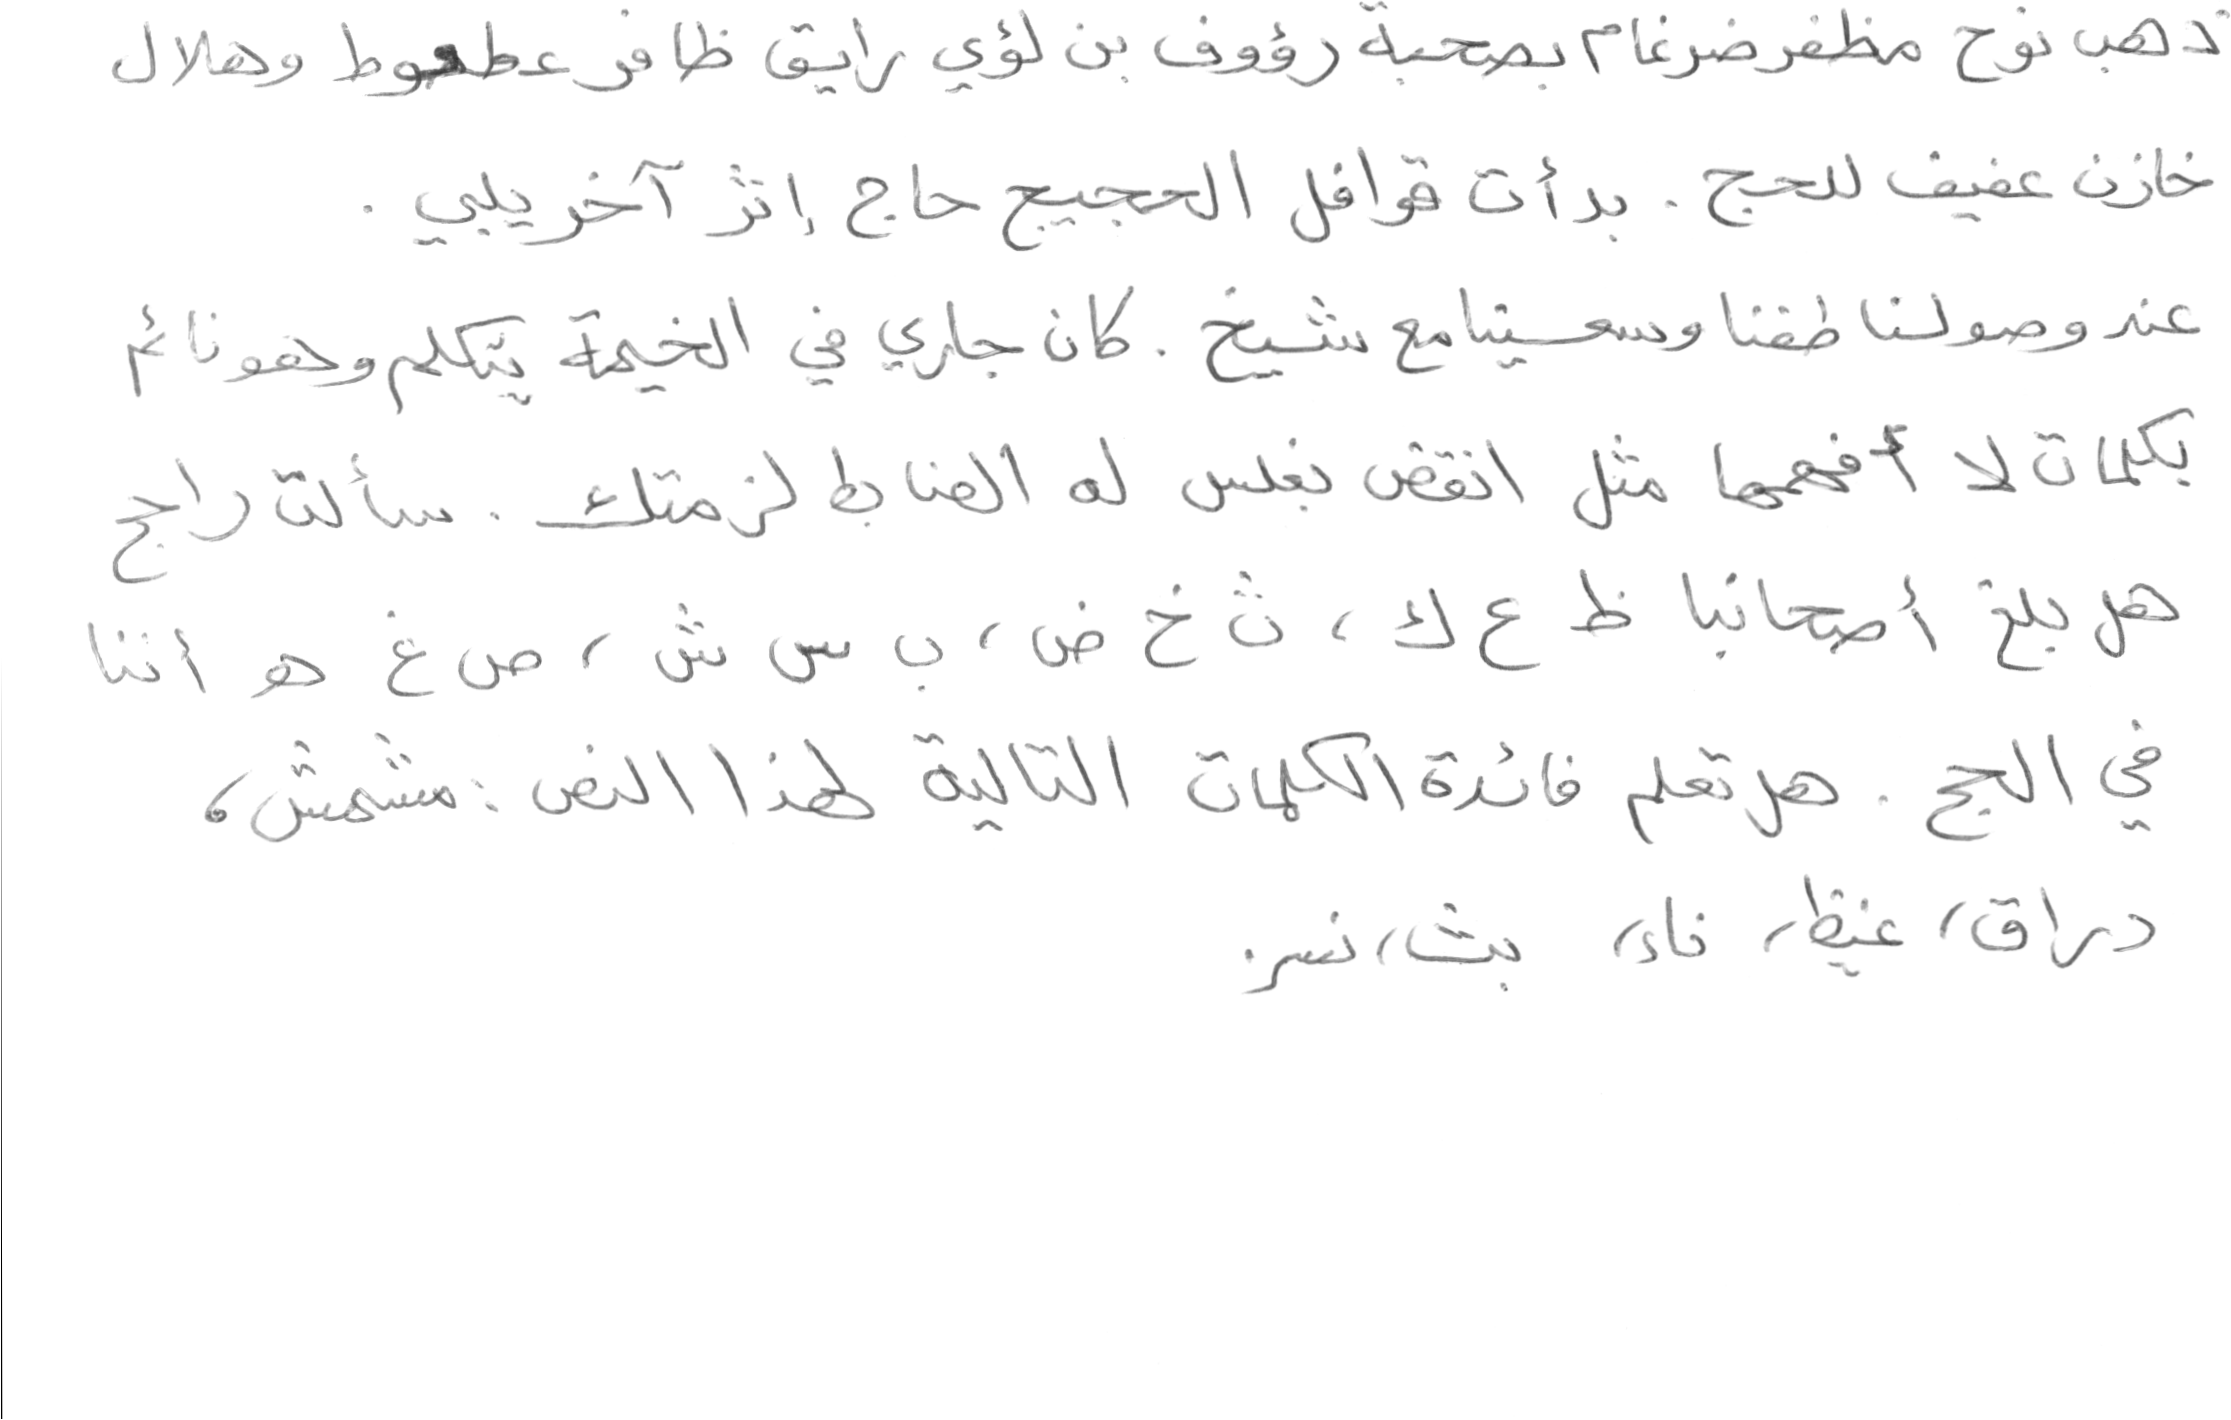 ذهب نوح مظفر ضرغام بصحبة رؤوف بن لؤي رايق ظافر عطعوط وهلال
خازن عفيف للحج . بدأت قوافل الحجيج حاج إثر آخر يلبي .
عند وصولنا طفنا وسعينا مع شيخ . كان جاري في الخيمة يتكلم وهو نائم
بكلمات لا أفهمها مثل انقض نغلس له الضابط لزمتك . سألت راجح
هل بلغ أصحابنا ظ ع ك ، ث خ ض ، ب س ش ، ص غ هـ أننا
في الحج . هل تعلم فائدة الكلمات التالية لهذا النص : مشمش ،
دراق ، غيظ ، ناء ، بث ، نسر .